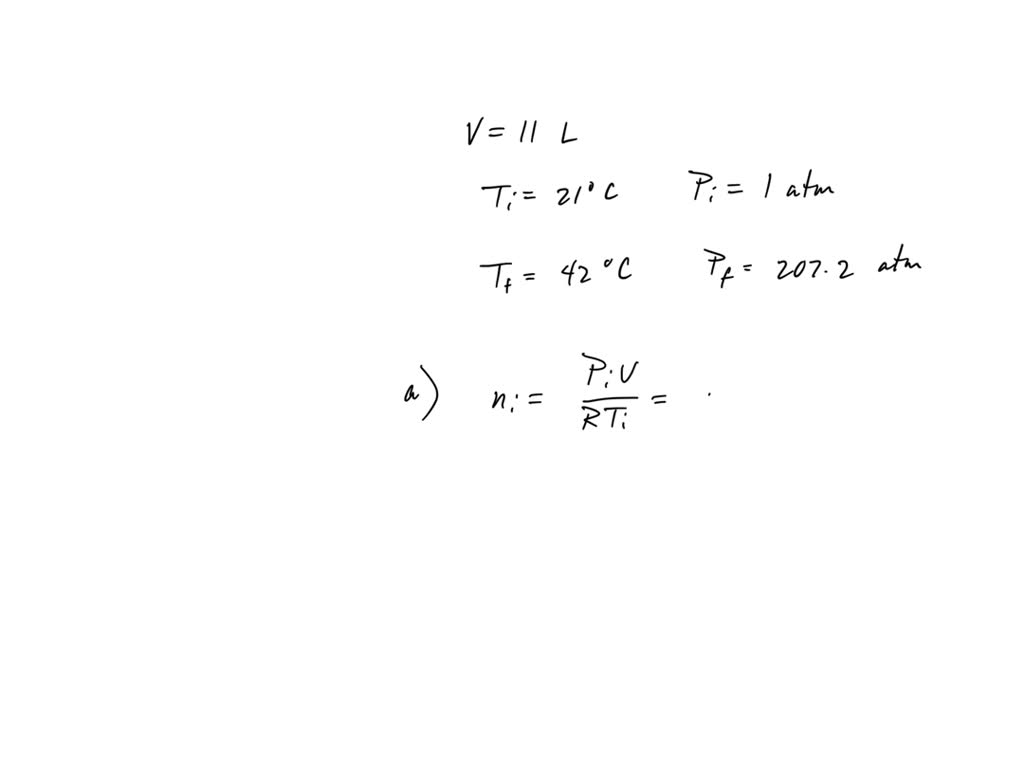 V = 11 L
Ti = 21°C Pi = 1 atm
Tf = 42°C Pf = 207.2 atm
a) ni = PiV / RTi =